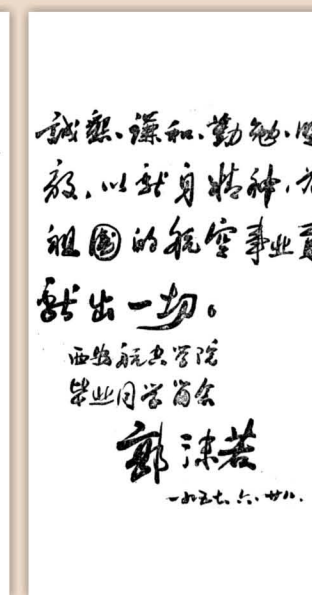 誠懇、謙和、勤勉、
毅，以献身精神，为
祖國的航空事业貢
献出一切。
西安航空学院
毕业同学留念
郭沫若
一九五七、六、廿八、